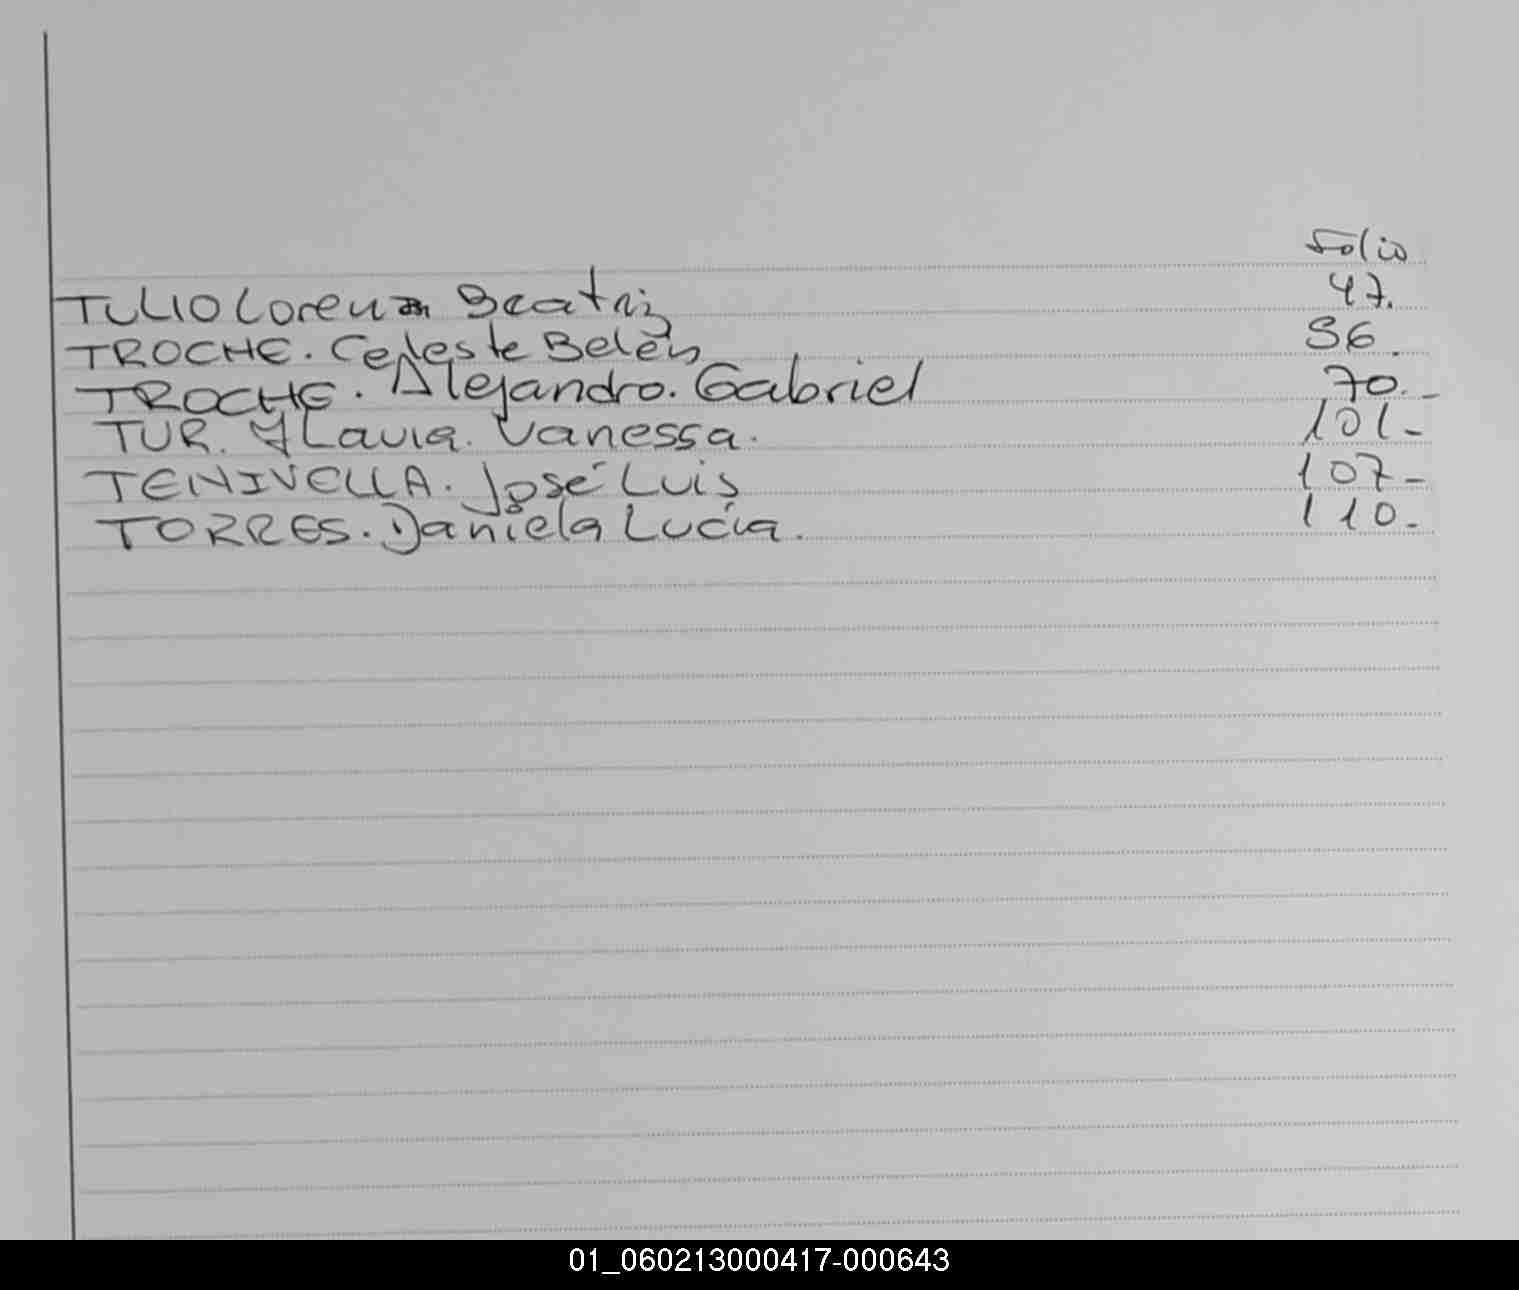 Folio
TULIO Lorenza Beatriz 47.
TROCHE. Celeste Belén 56.
TROCHE. Alejandro. Gabriel 70.-
TUR. Flavia. Vanessa. 101-
TENIVELLA. José Luis 107-
TORRES. Daniela Lucía. 110-
01_060213000417-000643